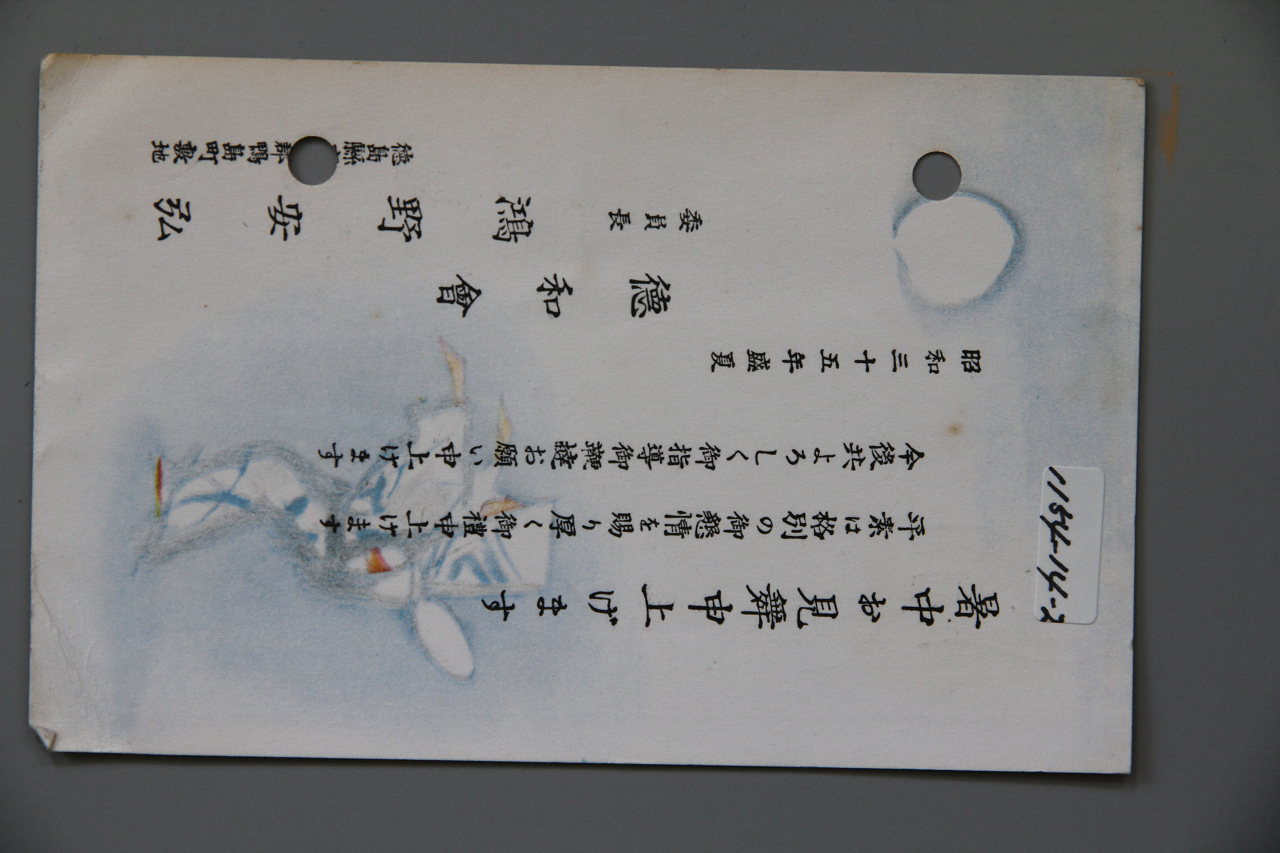 暑中お見舞申上げます
平素は格別の御懇情を賜り厚く御禮申上げます
今後共よろしく御指導御鞭撻お願い申上げます
昭和三十五年盛夏
德和會
委員長 鴻野安弘
徳島縣 郡鴨島町敷地
1154-14-2